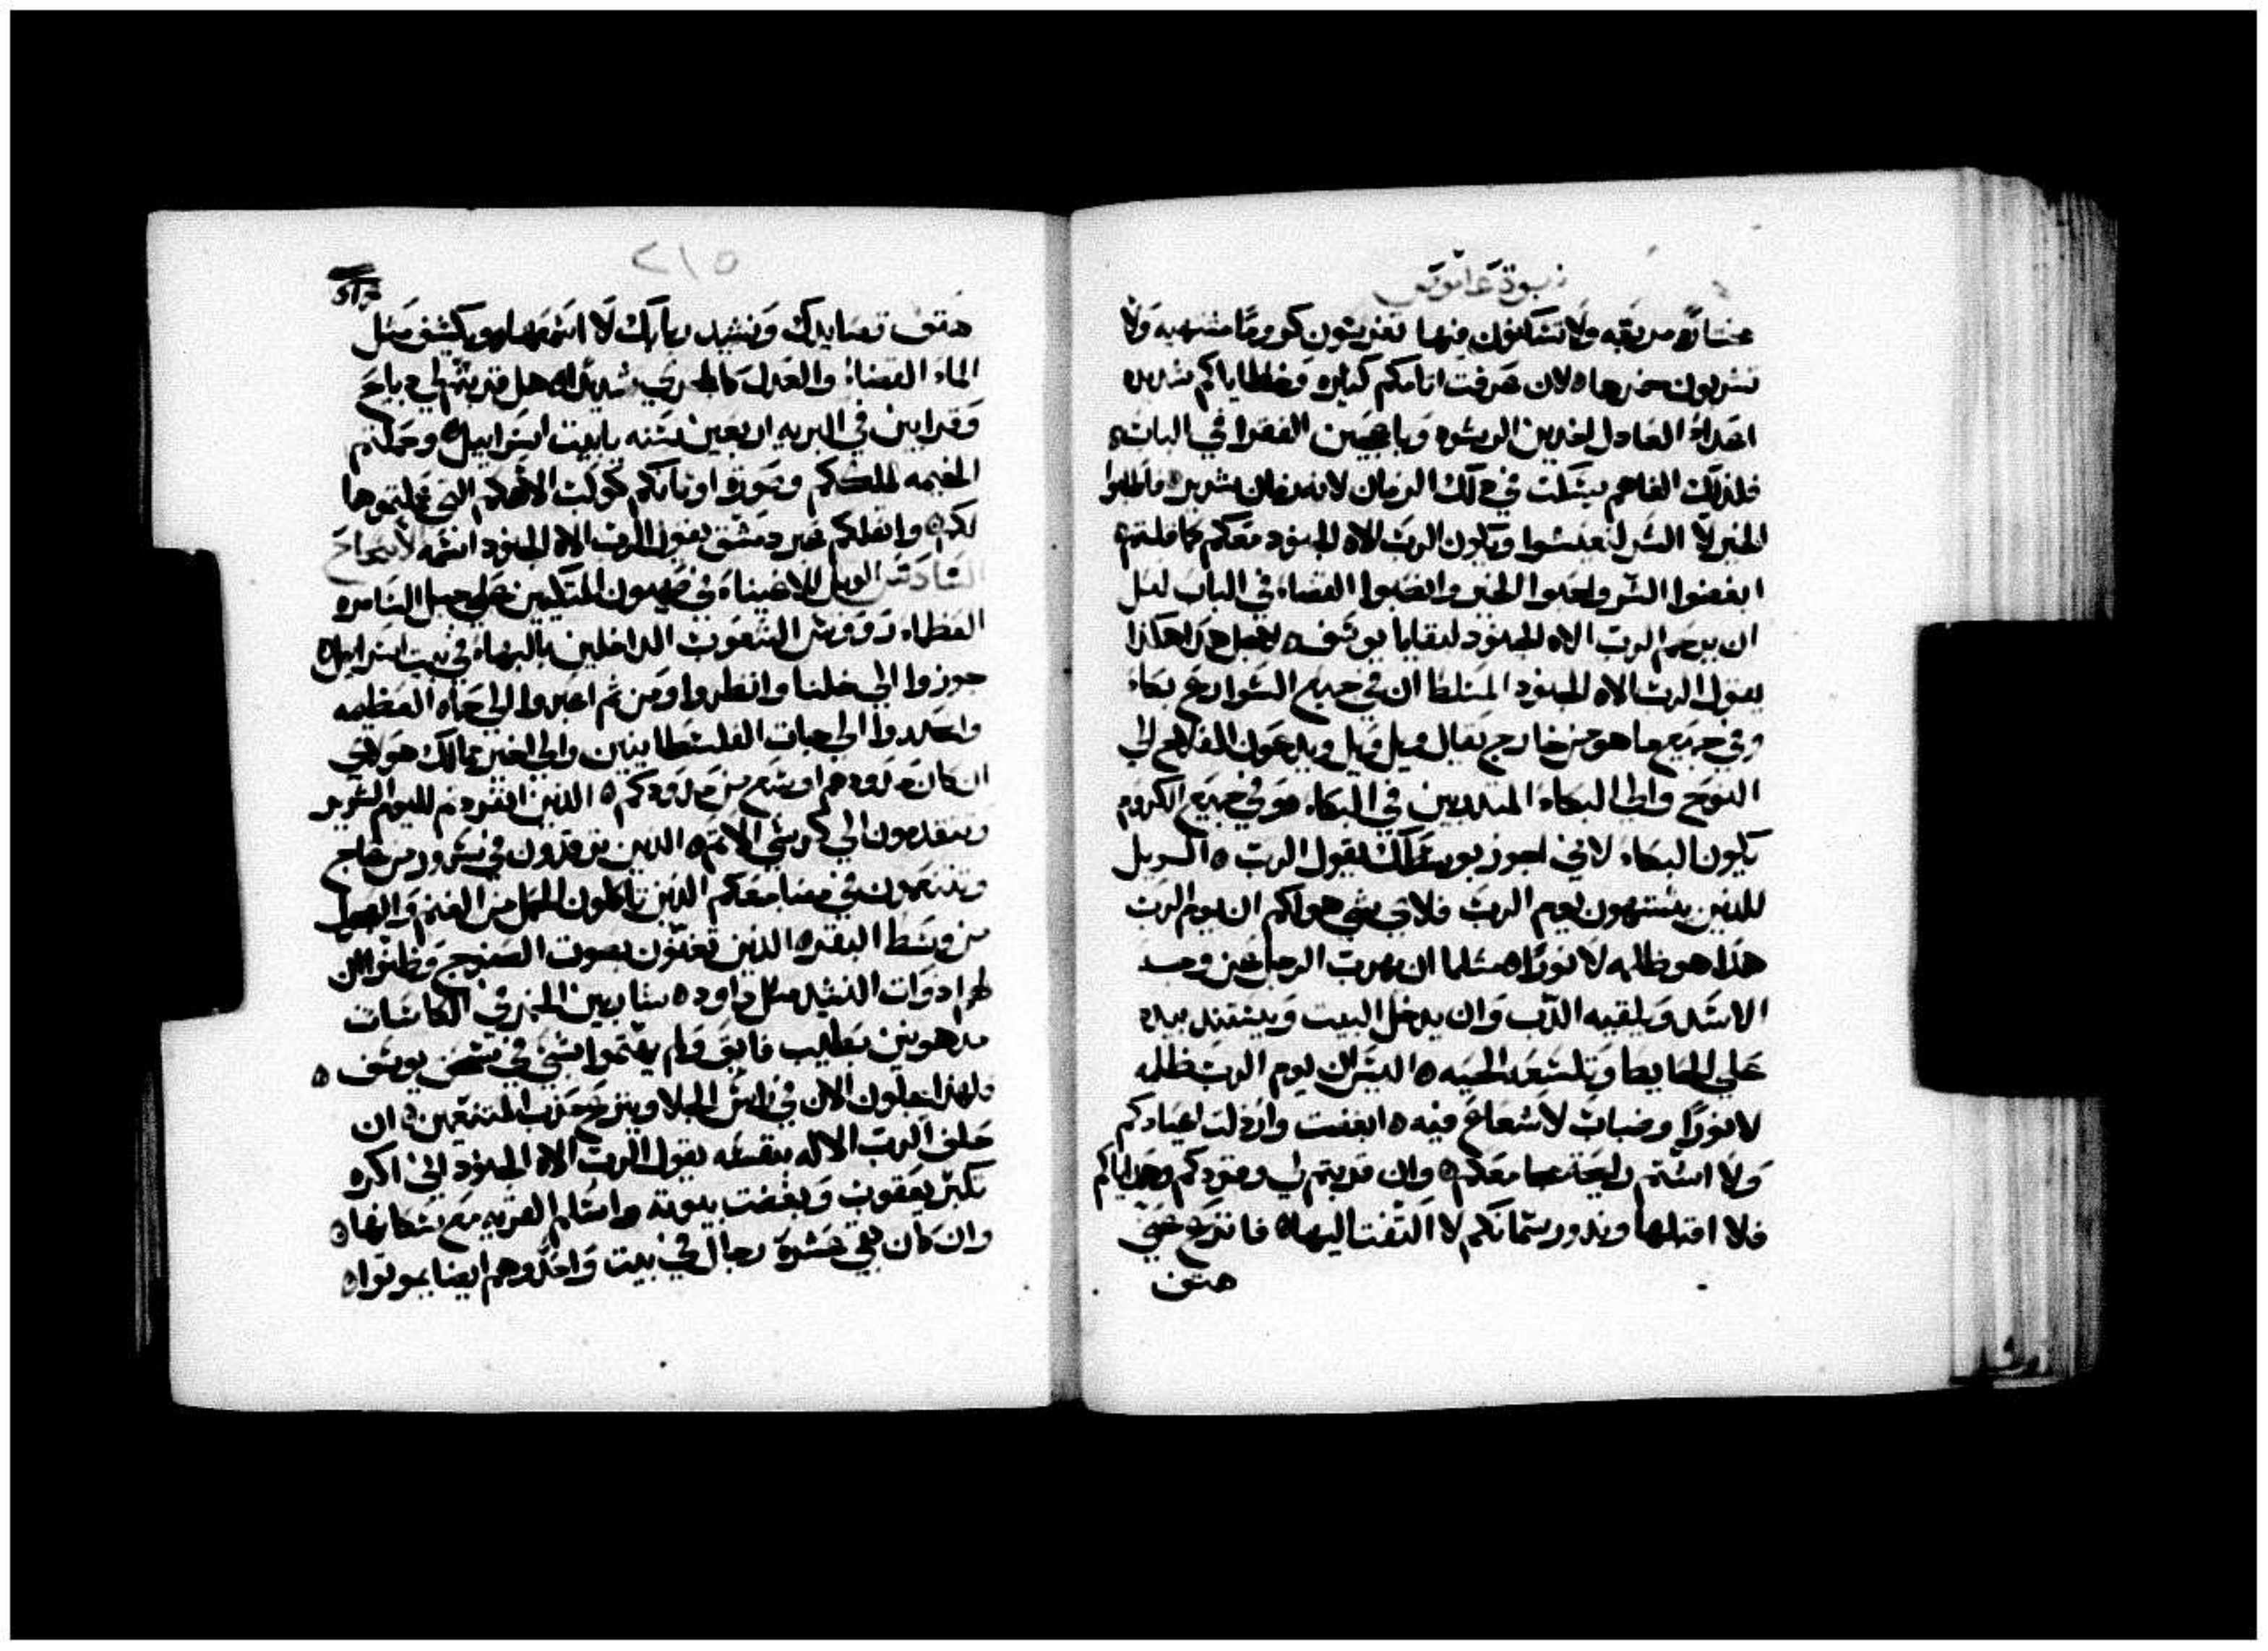 نبوة عاموص
مختاره مربعه ولا تسكنون فيها تغرسون كرومًا مشتهيه ولا
تشربون خمرها ه لان عرفت اثامكم كثيره وخطاياكم شديده
اعداء العادل اخدين الرشوه وباهجين الفقرا في الباب ه
فلذلك الفاهم يسكت في ذلك الزمان لانه زمان شرير ه فاطلبوا
الخير لا الشر لتعيشوا ويكون الرب الاه الجنود معكم كما قلتم ه
ابغضوا الشر واحبوا الخير وانصبوا القضاء في الباب لعل
ان يرحم الرب الاه الجنود لبقايا يوسف ه لاجل هذا هكذا
يقول الرب الاه الجنود المتسلط ان في جميع الشوارع بكاء
وفي جميع ما هو من خارج يقال ويل ويل ويدعون الفلاح الي
النوح والي البكاء المتدربين في البكاء ه وفي جميع الكروم
يكون البكاء لاني اجوز بوسطك يقول الرب ه الويل
للذين يشتهون يوم الرب فلاي شي هو لكم ان يوم الرب
هذا هو ظلمه لا نورًا ه مثلما ان يهرب الرجل من وجه
الاسد ويلقيه الدب وان يدخل البيت ويستند بيده
علي الحايط وتلسعه الحيه ه اليس ان يوم الرب ظلمه
لا نورًا وضباب لا شعاع فيه ه ابغضت وارذلت اعيادكم
ولا اشتم رايحة مجامعكم ه وان قدمتم لي وقودكم وهداياكم
فلا اقبلها ونذور سمانكم لا التفت اليها ه فانزع عني
هتف
٢١٥
هتف تصابيحك ونشيد ربابك لا اسمعها ه ويكشف مثل
الماء القضاء والعدل كالجري شديد ه هل قدمتم لي دبايح
وقرابين في البريه اربعين سنه يا بيت اسراييل ه وحملتم
الخيمه لملككم وصورة اوثانكم كوكب الاهكم التي عملتموها
لكم ه وانقلكم عبر دمشق يقول الرب الاه الجنود اسمه الاصحاح
السادس الويل للاغنياء في صهيون المتكلين علي جبل السامره
العظماء رووس الشعوب الداخلين بالبهاء في بيت اسراييل ه
جوزوا الي خلنا وانظروا ومن ثم اعبروا الي حماه العظيمه
وانحدروا الي جبات الفلسطانيين والي اخير ممالك هولاي
ان كان حدودهم اوسع من حدودكم ه الذين افتردتم لليوم الشرير
وتتقدمون الي كرسي الاثم ه الذين يرقدون في سرور من عاج
وتتنعمون في مضاجعكم الذين تاكلون الحمل من الغنم والعجل
من وسط البقر ه الذين تغنون بصوت الصنج وظنوا ان
لهم ادوات النشيد مثل داود ه شاربين الخمر في الكاسات
مدهونين بطيب فايق ولم يهتموا بشي في سحق يوسف ه
ولهذا يجلون الان في راس الجلا وينزع حزب المتنعمين ه ان
حلف الرب الاله بنفسه يقول الرب الاه الجنود اني اكره
تكبر يعقوب وبغضت بيوته واسلم القريه مع سكانها ه
وان كان بقي عشرة رجال في بيت واحد وهم ايضا يموتوا ه